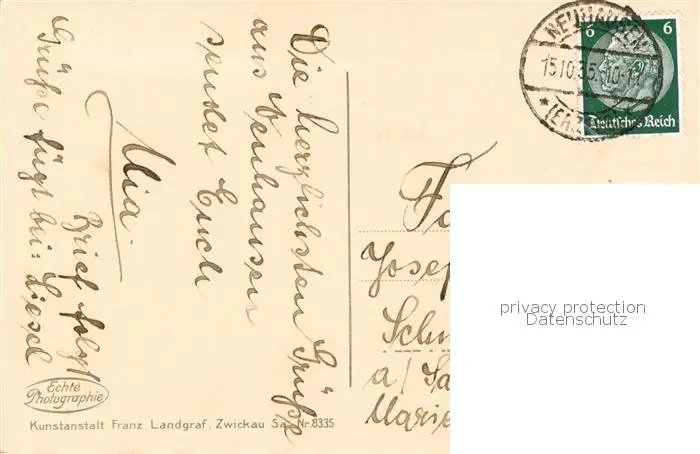 Die herzlichsten Grüße
aus Neuhausen
sendet Euch
Mia.
Brief folgt
Grüße fügt bei: Liesel
Echte
Photographie
Kunstanstalt Franz Landgraf, Zwickau Sa. Nr. 8335
NEUHAUSEN
15.10.35. 10-11
* (ERZ
6 6
Deutsches Reich
Fa
Josef
Schn
a/ Sa
Marie
privacy protection
Datenschutz